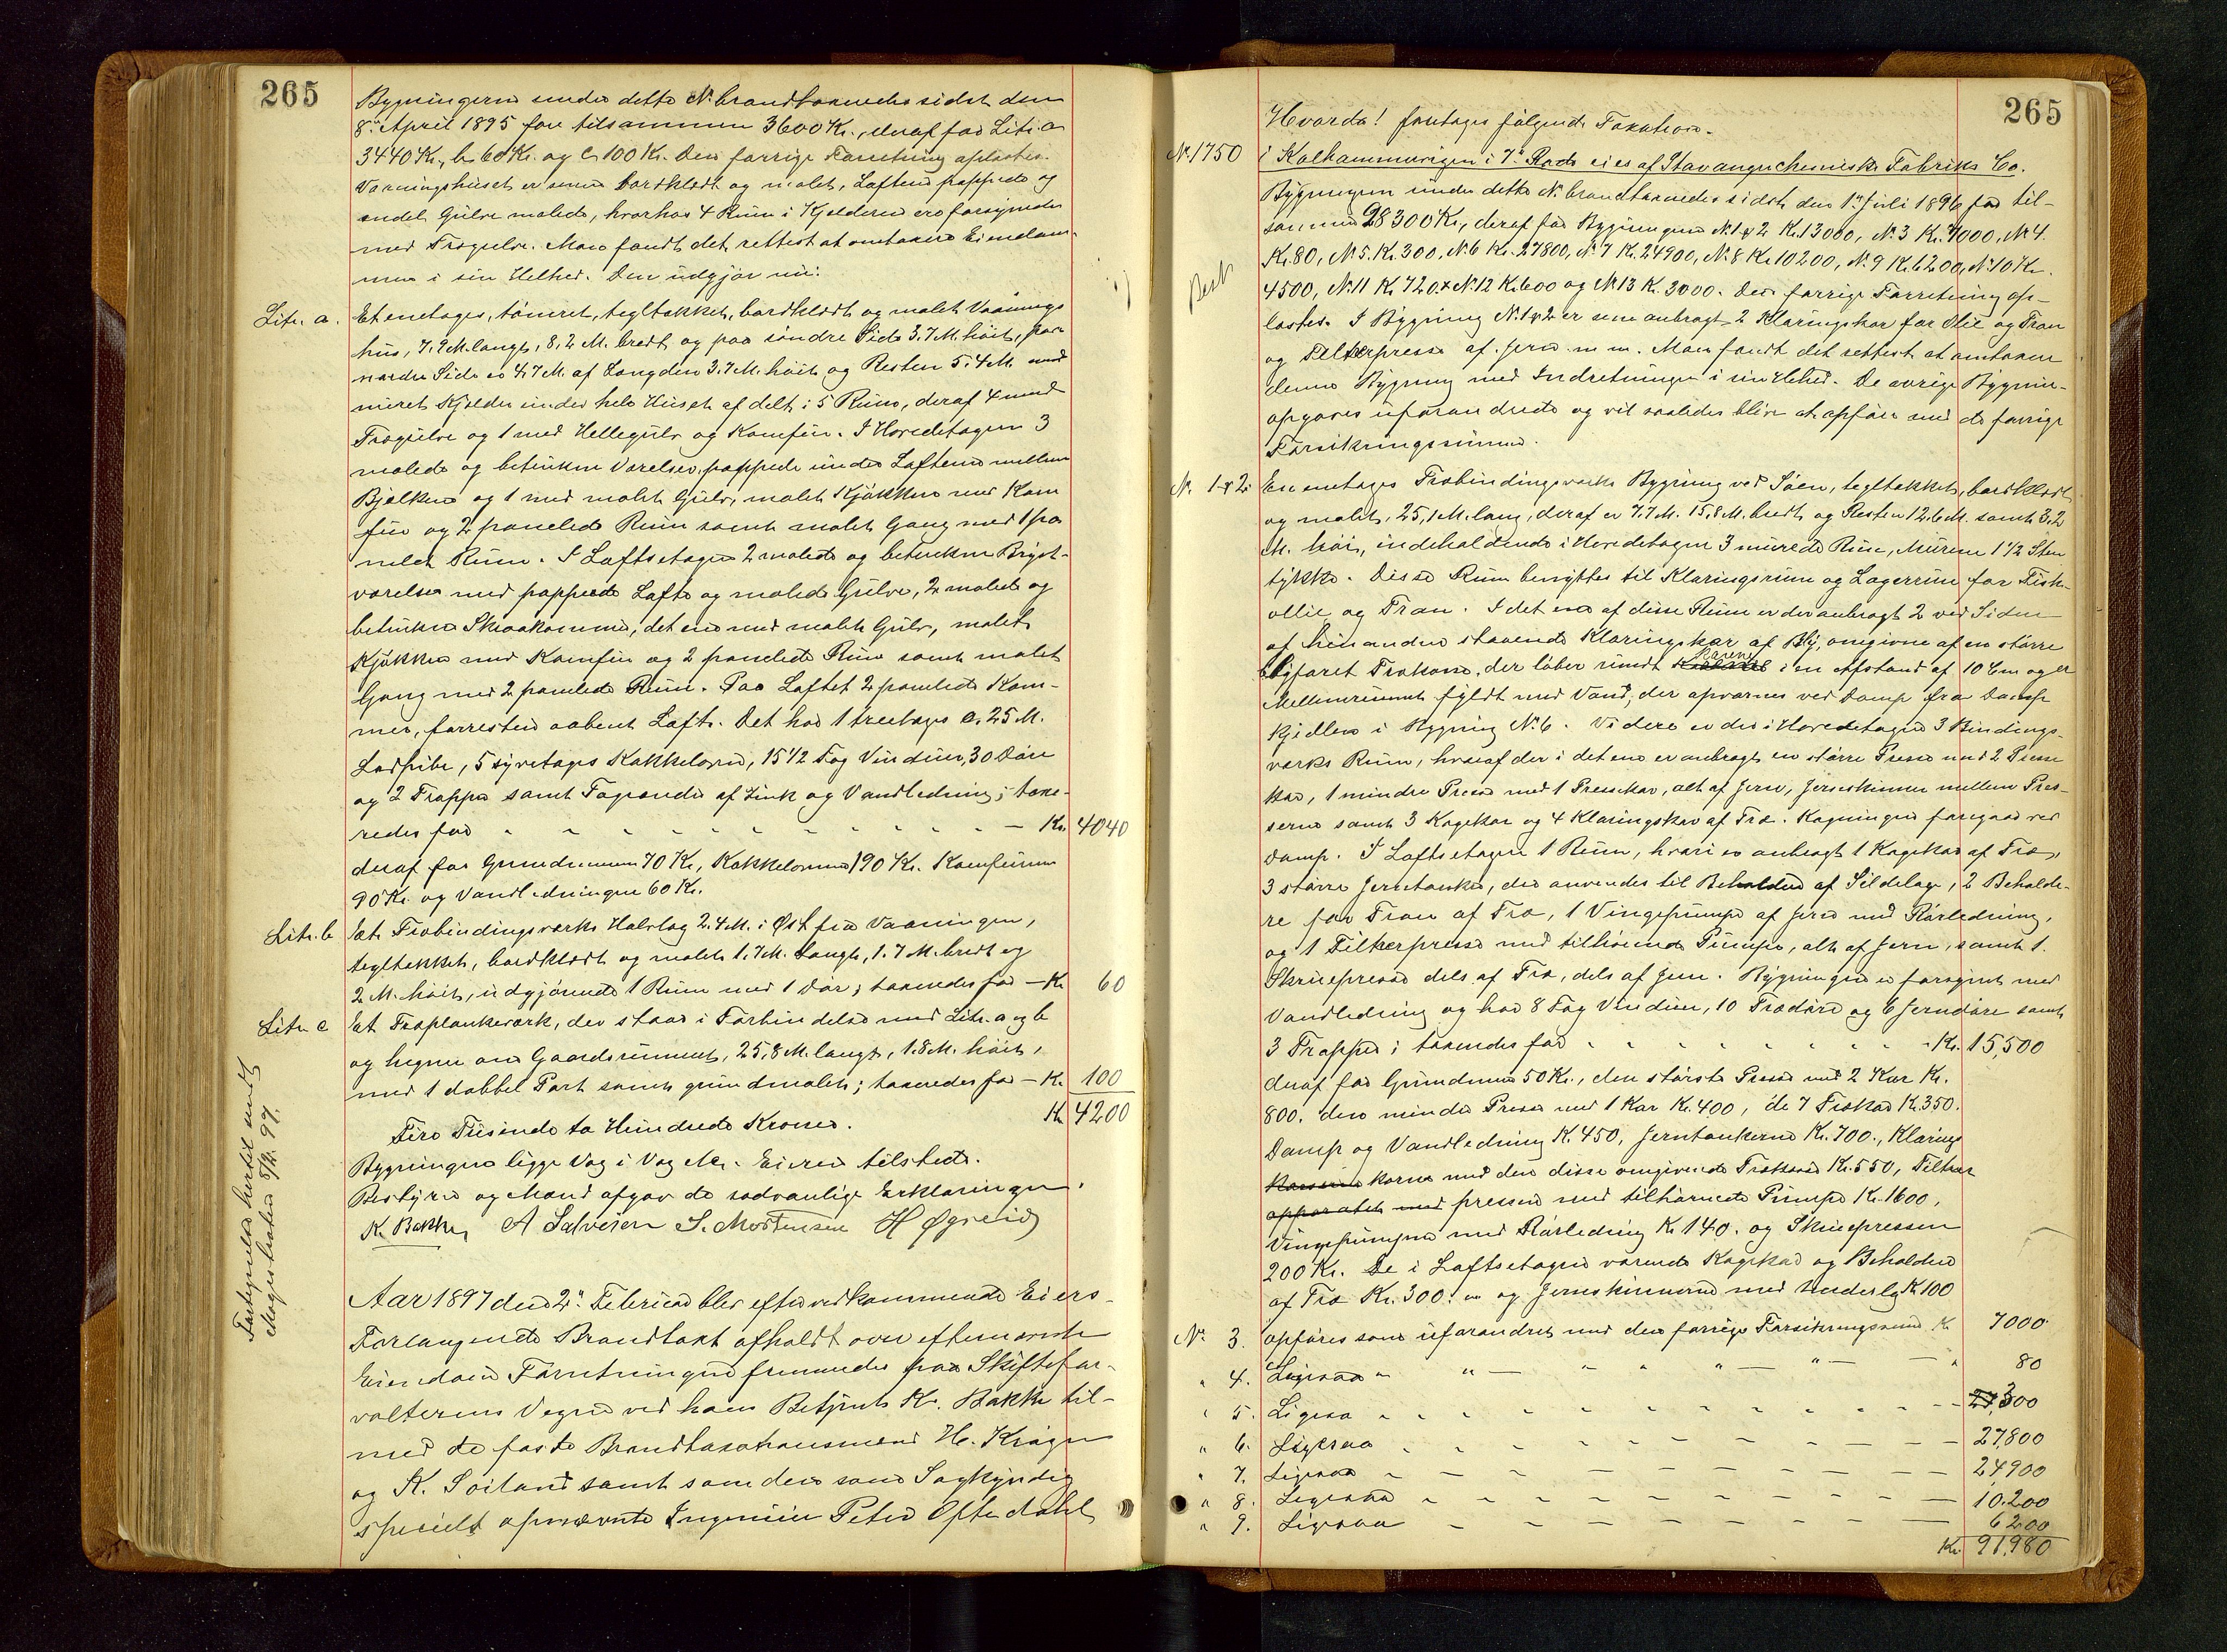 265
Bygningerne under dette No brandtaxeredes sidst den
8de April 1895 for tilsammen 3600 Kr., deraf for Litr. a
3440 Kr., b 60 Kr. og c 100 Kr. Den forrige Forretning oplæstes.
Vaaningshuset er senere bordklædt og malet, Lofterne pappede og
endel Gulve malede, hvorhos 4 Rum i Kjelderen ere forsynede
med Trægulve. Man fandt det rettest at omtaxere Eiendom-
men i sin Helhed. Den udgjør nu:
Litr. a. Et enetages, tømret, tegltækket, bordklædt og malet Vaanings
hus, 7,9 M. langt, 8,2 M. bredt og paa søndre Side 3.7 M. høit, paa
nordre Side er 4.7 M. af Længden 3.7 M. høit og Resten 5.4 M. med
muret Kjelder under hele Huset afdelt i 5 Rum, deraf 4 med
Trægulve og 1 med Hellegulv og Komfur. I Hovedetagen 3
malede og betrukne Værelser, pappede under Lofterne mellem
Bjelkerne og 1 med malet Gulv, malet Kjøkken med Kom
fur og 2 panelede Rum samt malet Gang med 1 pa
nelet Rum. I Loftsetagen 2 malede og betrukne Bryst-
værelser med pappede Lofte og malede Gulve, 2 malede og
betrukne Skraakammer, det ene med malet Gulv, malet
Kjøkken med Komfur og 2 panelede Rum samt malet
Gang med 2 panelede Rum. Paa Loftet 2 panelede Kam-
mer, forresten aabent Loft. Det har 1 treetages a. 25 M.
Ladpibe, 5 syvetages Kakkelovne, 15 1/2 Fag Vinduer, 30 Døre
og 2 Trapper samt Tagrender af Zink og Vandledning; taxe-
redes for - - - - Kr. 4040
deraf for Grundmuren 70 Kr., Kakkelovnene 190 Kr. Komfurerne
90 Kr. og Vandledningen 60 Kr.
Litr. b Et Træbindingsværks Halvtag 2.4 M. i Øst fra Vaaningen,
tegltækket, bordklædt og malet 1.7 M. langt, 1.7 M. bredt og
2 M. høit, udgjørende 1 Rum med 1 Dør; taxeredes for - Kr. 60
Litr. c Et Træplankeværk, der staar i Forbindelse med Litr. a og b
og hegner om Gaardsrummet, 25,8 M. langt, 1.8 M. høit,
med 1 dobbel Port samt grundmalet; taxeredes for - Kr. 100
Kr. 4200
Fire Tusinde to Hundrede Kroner.
Bygningerne ligge Væg i Væg m.m. Eieren tilstede.
Bestyrer og Mænd afgav de sædvanlige Erklæringer.
K. Bakke, A Salvesen S. Mortensen H Øgreid
Aar 1897 den 2den Februar blev efter vedkommende Eiers
Forlangende Brandtaxt afholdt over efternævnte
Eiendom Forretningen fremmedes paa Skiftefor-
valterens Vegne ved hans Betjent K. Bakke til-
med de faste Brandtaxationsmænd H. Krüger
og K. Soiland samt som den som Sagkyndig
specielt opnævnte Ingeniør Peter Oftedahl
265
Hvorda! foretages følgende Taxation.
No 1750 i Kalhammervigen i 7de Rode eies af Stavanger chemiske Fabriks Co.
Bygningerne under dette No brandtaxeredes sidst den 1de Juli 1896 for til-
sammen 98300 Kr., deraf for Bygningerne No 1 & 2 Kr. 13000, No 3 Kr. 7000, No 4
Kr. 80, No 5. Kr. 300, No 6 Kr. 27800, No 7 Kr. 24900, No 8 Kr. 10200, No 9 Kr. 6200, No 10 Kr.
4500, No 11 Kr. 720. No 12 Kr. 600 og No 13 Kr. 3000. Den forrige Forretning op-
læstes. I Bygning No 1 & 2 er senere anbragt 2 Klaringskar for Olie og Tran
og Filterpresse af Jern m.m. Man fandt det rettest at omtaxere
denne Bygning med Indretninger i sin Helhed. De øvrige Bygnin-
opgaves uforandrede og vil saaledes blive at opføre med de forrige
Forsikringssummer.
No 1 & 2. En enetages Træbindingsværks Bygning ved Søen, tegltækket, bordklædt
og malet, 25,1 M. lang, deraf er 7.7 M. 15,8 M. bredt og Resten 12.6 M. samt 3.2
M. høi, indeholdende i Hovedetagen 3 murede Rum, Murene 1 1/2 Sten
tykke. Disse Rum benyttes til Klaringsrum og Lagerrum for Fisk-
ollie og Tran. I det ene af disse Rum er der anbragt 2 ved Siden
af hinanden staaende Klaringskar af Bly, omgivne af en større
blyforet Trækasse, der løber rundt Karene i en Afstand af 10 Cm og er
Mellemrummet fyldt med Vand, der opvarmes ved Damp fra Damp
kjedlen i Bygning No 6. Videre er der i Hovedetagen 3 Bindings-
værks Rum, hvoraf der i det ene er anbragt en større Presse med 2 Presse
kar, 1 mindre Presse med 1 Pressekar, alt af Jern, Jernskinner mellem Pres-
serne samt 3 Kogekar og 4 Klaringskar af Træ. Kogningen foregaar ved
Damp. I Loftsetagen 1 Rum, hvori er anbragt 1 Kogekar af Træ,
3 større Jerntanker, der anvendes til Beholdere af Sildelage, 2 Beholde-
re for Tran af Træ, 1 Vingepumpe af Jern med Rørledning,
og 1 Filterpresse med tilhørende Pumpe, alt af Jern, samt 1
Skruepresse dels af Træ, dels af Jern. Bygningen er forsynet med
Vandledning og har 8 Fag Vinduer, 10 Trædøre og 6 Jerndøre samt
3 Trapper; taxeredes for - - - Kr. 15,500
deraf for Grundmur 50 Kr., den største Presse med 2 Kar Kr.
800. den mindre Presse med 1 Kar Kr. 400, de 7 Trækar Kr. 350.
Damp og Vandledning Kr. 450, Jerntankerne Kr. 700., Klarings
karene med den disse omgivende Trækasse Kr. 550, Filter
apparatet med pressen med tilhørende Pumpe Kr. 1600,
Vingepumpen med Rørledning Kr 140. og Skruepressen
200 Kr. De i Loftsetagen værende Kogekar og Beholdere
af Træ Kr. 300. og Jernskinnerne med Underlag Kr 100
No 3. opføres som uforandret med den forrige Forsikringssum Kr. 7000
" 4. Ligesaa - - - 80
" 5. Ligesaa - - - 300
" 6. Ligesaa - - - 27,800
" 7. Ligesaa - - - 24,900
" 8. Ligesaa - - - 10,200
" 9. Ligesaa - - - 6200
Kr. 91,980